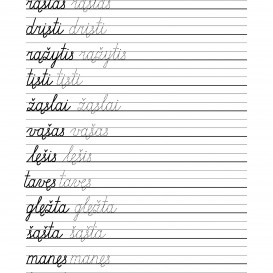 rąstas rąstas
drįsti drįsti
rąžytis rąžytis
tįsti tįsti
žąslai žąslai
vąšas vąšas
lęšis lęšis
tavęs tavęs
glęžta glęžta
šąšta šąšta
manęs manęs